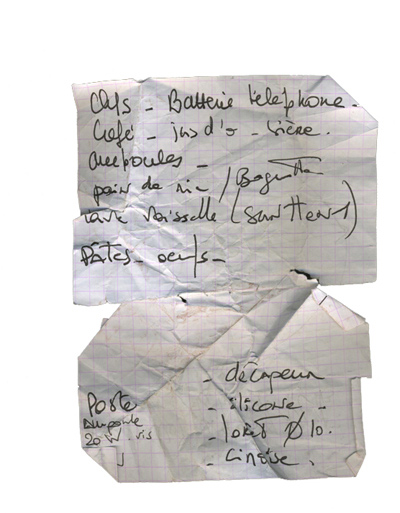 Clefs - Batterie téléphone -
Café - jus d'o - bière.
ampoules -
pain de mie / Baguette
lave vaisselle (Sun
Pâtes - oeufs -
- décapeur
Poste - silicone -
Ampoule - foret Ø 10.
20 W - vis